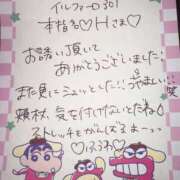 イルファーロ301
本指名♡Hさま♡
お誘い頂いて
ありがとうございました!
また更にシュッとしたか!!
うやましい!!笑
頬杖、気を付けないとだね♪
ストレッチもがんばるよーっ
♡ふるわ♡